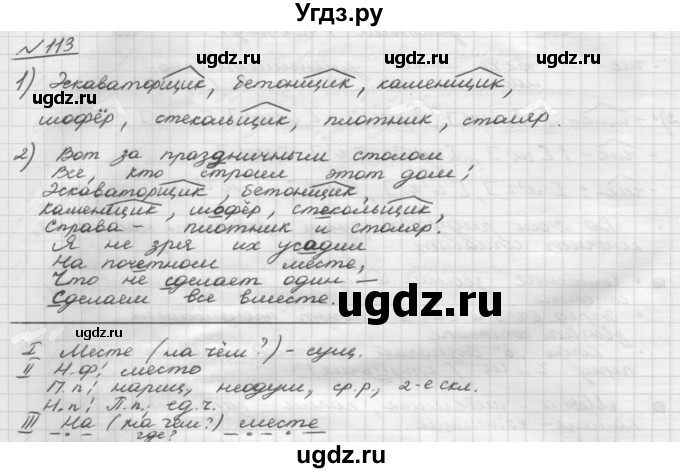 Угдз.ру
№ 113
1) Эскаваторщик, бетонщик, каменщик,
шофёр, стекольщик, плотник, столяр.
2) Вот за праздничным столом
Все, кто строил этот дом:
Эскаваторщик, бетонщик,
Каменщик, шофёр, стекольщик,
Справа - плотник и столяр.
Я не зря их усадил
На почётном месте,
Что не сделает один -
Сделаем все вместе.
I Месте (на чём?) - сущ.
II Н.ф: место
П.п: нариц, неодуш, ср.р, 2-е скл.
Н.п: П.п. ед.ч.
III На (на чём?) месте
где?
ugdz.ru
ugdz.ru
ugdz.ru
ugdz.ru
ugdz.ru
ugdz.ru
ugdz.ru
ugdz.ru